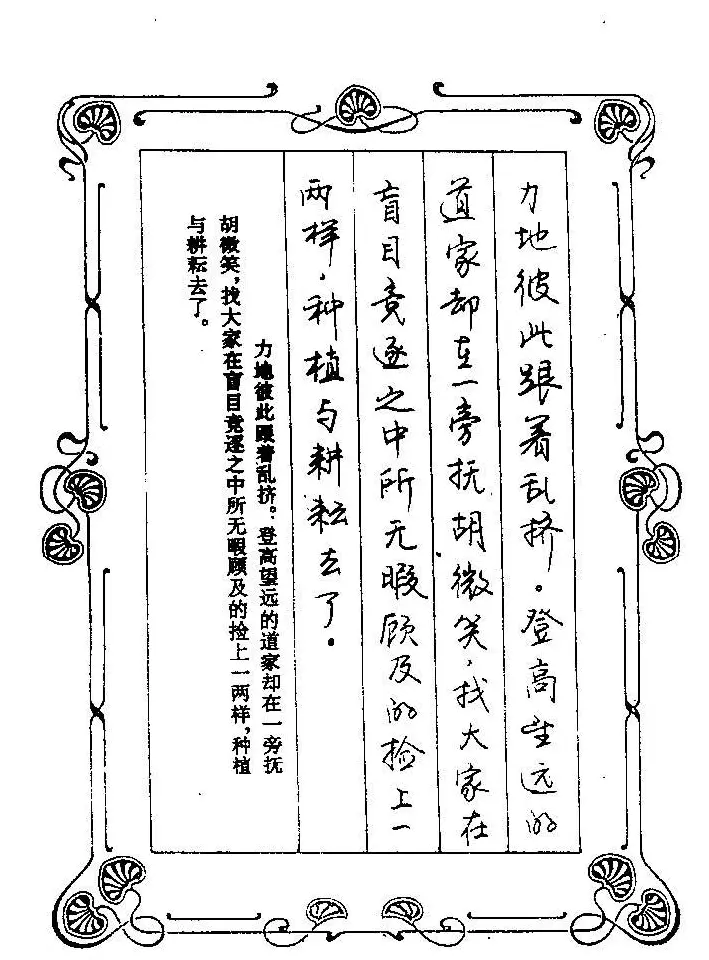 力地彼此跟着乱挤。登高望远的
道家却在一旁抚胡微笑，找大家在
盲目竞逐之中所无暇顾及的捡上一
两样，种植与耕耘去了。
力地彼此跟着乱挤。登高望远的道家却在一旁抚
胡微笑，找大家在盲目竞逐之中所无暇顾及的捡上一两样，种植
与耕耘去了。